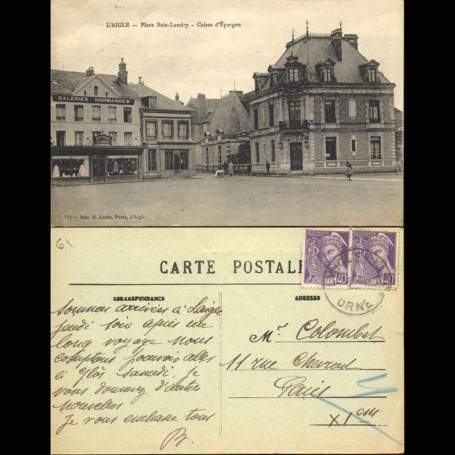 L'AIGLE — Place Bois-Landry - Caisse d'Épargne
GALERIES NORMANDES
61
CARTE POSTALE
CORRESPONDANCE
ADRESSE
40
40
ORNE
sommes arrivées à Laigle
jeudi soir après un
long voyage nous
comptons pouvoir aller
à Glos samedi. Je
vous donnerez d'autres
nouvelles
Je vous embrasse tous
B.
Mr Colombet
11 rue
Paris
XI em